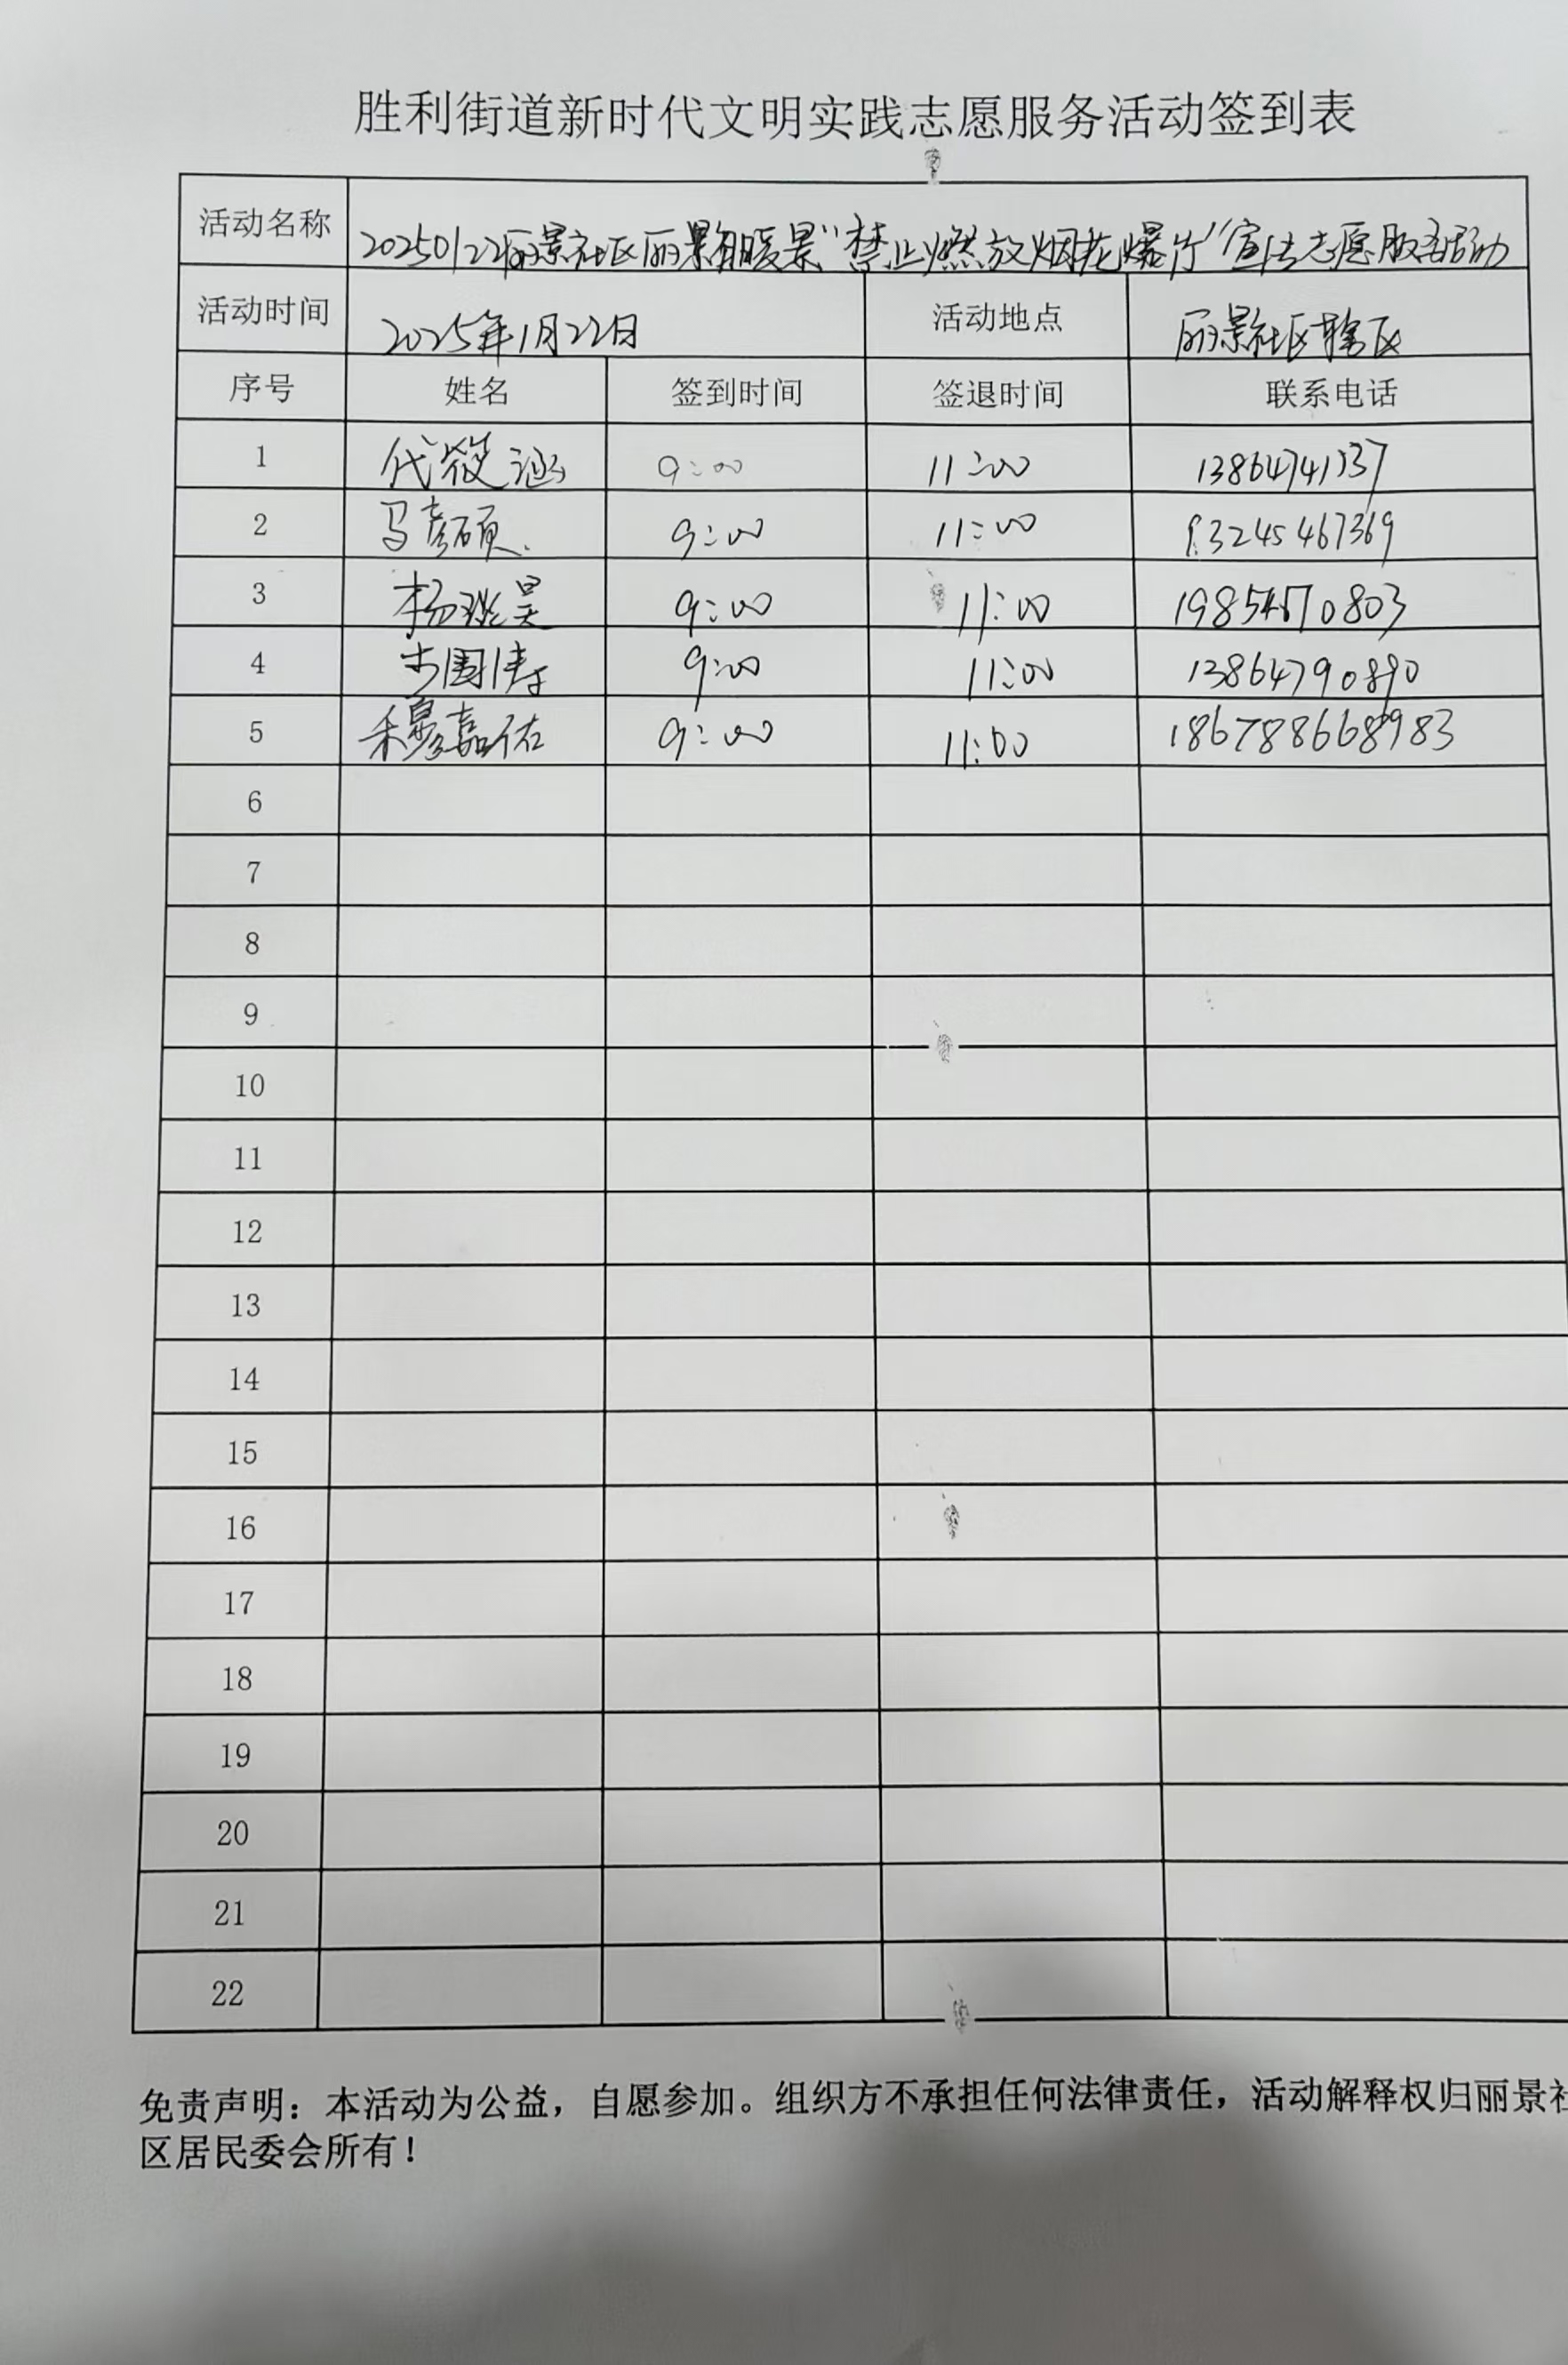 胜利街道新时代文明实践志愿服务活动签到表
活动名称 20250122丽景社区丽景有暖景"禁止燃放烟花爆竹"宣传志愿服务活动
活动时间 2025年1月22日 活动地点 丽景社区辖区
序号 姓名 签到时间 签退时间 联系电话
1 代筱涵 9:00 11:00
2 马彦硕 9:00 11:00
3 9:00 11:00
4 9:00 11:00 13864790890
5 穆嘉佑 9:00 11:00
6
7
8
9
10
11
12
13
14
15
16
17
18
19
20
21
22
免责声明：本活动为公益，自愿参加。组织方不承担任何法律责任，活动解释权归丽景社
区居民委会所有！